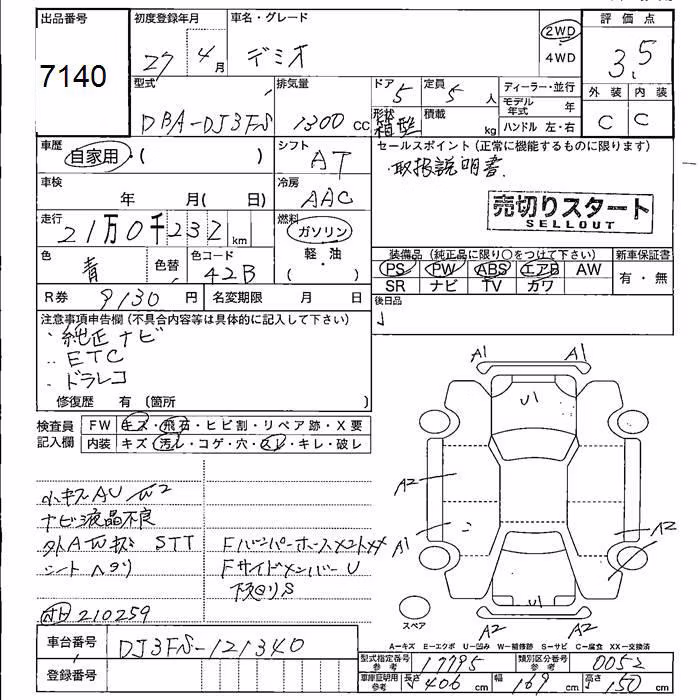 出品番号 初度登録年月 車名・グレード 2WD 評価点
7140 27年 4月 デミオ 4WD 3.5
型式 排気量 ドア 定員 ディーラー・並行 外装 内装
DBA-DJ3FS 1300 cc 5 5人 モデル年式 年 C C
形状 箱型 積載 kg ハンドル 左・右
車歴 自家用・( ) シフト AT セールスポイント (正常に機能するものに限ります)
・取扱説明書
車検 年 月( 日) 冷房 AAC
売切りスタート
SELLOUT
走行 21万0千232km 燃料 ガソリン
(軽・油 ・ )
装備品 (純正品に限り○をつけて下さい) 新車保証書
PS PW ABS エアB AW 有・無
SR ナビ TV カワ
色 青 色替 色コード 42B
後日品
R券 9130円 名変期限 月 日
注意事項申告欄 (不具合内容等は具体的に記入して下さい)
・純正ナビ
・ETC
・ドラレコ
修復歴 有 (箇所 )
検査員 FW キズ・飛石・ヒビ割・リペア跡・X要
記入欄 内装 キズ・汚レ・コゲ・穴・スレ・キレ・破レ
小キズAU W2
ナビ液晶不良
STT
Fサイドメンバー U
下廻りS
210259
A1 A1
U1
A2
A1 A2
U1
A2 A2
スペア
A=キズ E=エクボ U=凹み W=補修跡 S=サビ C=腐食 XX=交換済
車台番号 DJ3FS-121340
登録番号
型式指定番号 参考 17795 類別区分番号 参考 0052
車庫証明用 参考 長さ 406 cm 幅 169 cm 高さ 150 cm